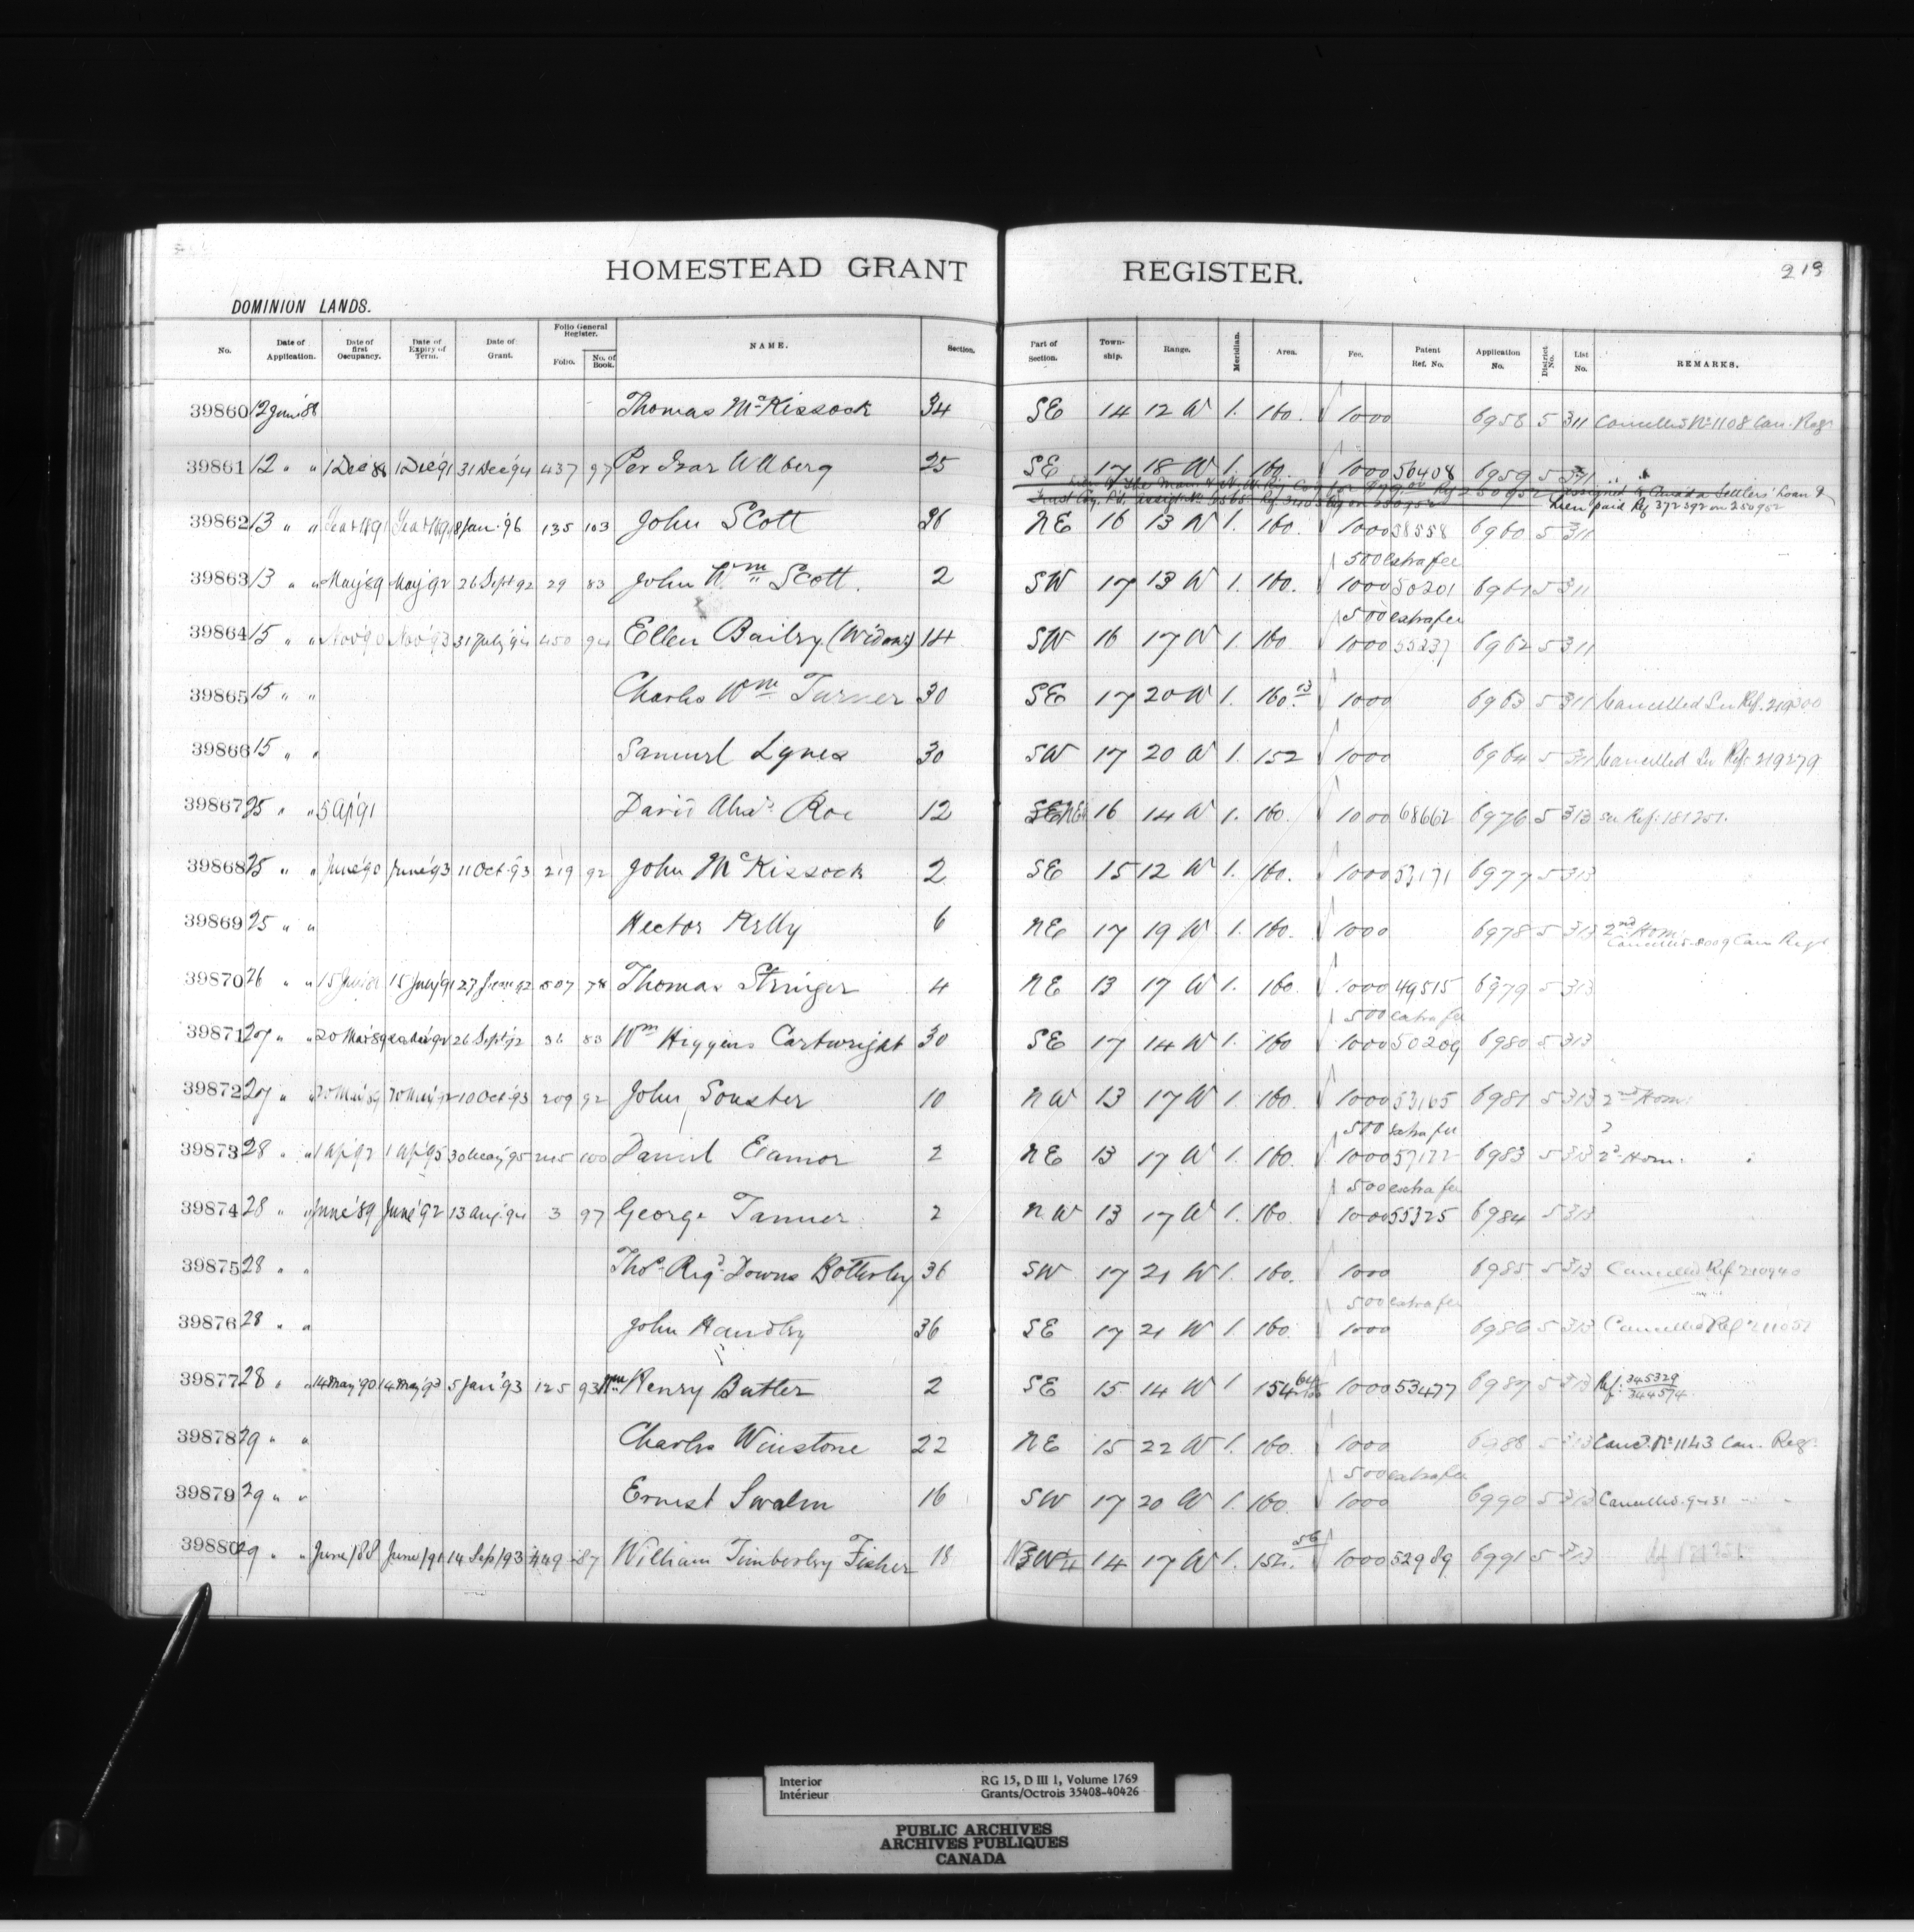 HOMESTEAD GRANT REGISTER. 219
DOMINION LANDS.
No. Date of Application. Date of first Occupancy. Date of Expiry of Term. Date of Grant. Folio General Register. Folio. No. of Book. NAME. Section. Part of Section. Township. Range. Meridian. Area. Fee. Patent Ref. No. Application No. District No. List No. REMARKS.
39860 12 June '88 Thomas McKissock 34 SE 14 12 W 1. 160. 1000 6958 5 311 Cancelled No 1108 Can. Regr
39861 12 " " 1 Dec '88 1 Dec '91 31 Dec '94 437 97 Per Isar Wllberg 25 SE 17 18 W 1. 160. 1000 56408 6959 5 311
assigned to Canada Settlers' Loan &
Lien paid Rf 372592 on 250952
39862 13 " " 8 Jan. '96 135 103 John Scott 26 NE 16 13 W 1. 160. 1000 58558 6960 5 311
500 extra fee
39863 13 " " May '89 May '92 26 Sept 92 29 83 John Wm Scott. 2 SW 17 13 W 1. 160. 1000 50201 6961 5 311
500 extra fee
39864 15 " " Nov '90 Nov '93 31 July '94 450 94 Ellen Bailey (Widow) 14 SW 16 17 W 1. 160 1000 55237 6962 5 311
39865 15 " " Charles Wm Turner 30 SE 17 20 W 1. 160.13 1000 6963 5 311 Cancelled See Ref. 219200
39866 15 " " Samuel Lynes 30 SW 17 20 W 1. 152 1000 6964 5 311 Cancelled See Ref. 219279
39867 25 " " 5 Ap '91 David Alexr Roe 12 SE NE 16 14 W 1. 160. 1000 68662 6976 5 313 see Ref. 181251.
39868 25 " " June '90 June '93 11 Oct. '93 219 92 John McKissock 2 SE 15 12 W 1. 160. 1000 53171 6977 5 313
39869 25 " " Hector Kelly 6 NE 17 19 W 1. 160. 1000 6978 5 313 2nd Hom:
Cancelled 8009 Can Regr
39870 26 " " 15 July '91 27 June 92 507 78 Thomas Stringer 4 NE 13 17 W 1. 160. 1000 49515 6979 5 313
500 extra fee
39871 27 " " 20 Mar '89 26 Sept '92 36 83 Wm Higgens Cartwright 30 SE 17 14 W 1. 160 1000 50209 6980 5 313
39872 27 " " 20 Mar '89 20 Mar '92 10 Oct '93 209 92 John Souster 10 NW 13 17 W 1. 160. 1000 53165 6981 5 313 2nd Hom:
500 extra fee
39873 28 " " 1 Ap '92 1 Ap '95 30 May '95 245 100 Daniel Eamor 2 NE 13 17 W 1. 160. 1000 57172 6983 5 313 2d Hom:
500 extra fee
39874 28 " " June '89 June '92 13 Aug '94 3 97 George Tanner 2 NW 13 17 W 1. 160. 1000 55325 6984 5 313
39875 28 " " Thos. Regd. Downs Botterley 36 SW 17 21 W 1. 160. 1000 6985 5 313 Cancelled Ref 210940
500 extra fee
39876 28 " " John Handley 36 SE 17 21 W 1. 160 1000 6986 5 313 Cancelled Ref 211051
39877 28 " " 14 May '90 14 May '93 5 Jan '93 125 93 Wm Henry Butler 2 SE 15 14 W 1 154 64/100 1000 53477 6987 5 313 Ref: 345329
344574
39878 29 " " Charles Winstone 22 NE 15 22 W 1. 160. 1000 6988 5 313 Cancd. No 1143 Can. Regr.
500 extra fee
39879 29 " " Ernest Swalm 16 SW 17 20 W 1. 160. 1000 6990 5 313 Cancelled. 9431 " "
39880 29 " " June/88 June/91 14 Sep/93 449 87 William Timberley Fisher 18 14 17 W 1. 152.56 1000 52989 6991 5 313
Interior
Intérieur
RG 15, D III 1, Volume 1769
Grants/Octrois 35408-40426
PUBLIC ARCHIVES
ARCHIVES PUBLIQUES
CANADA